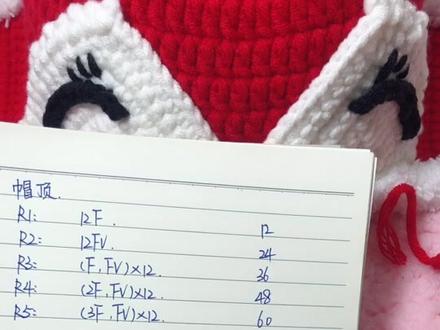 帽顶.
R1: 12F. 12
R2: 12FV. 24
R3: (F,FV)×12. 36
R4: (2F,FV)×12. 48
R5: (3F,FV)×12. 60